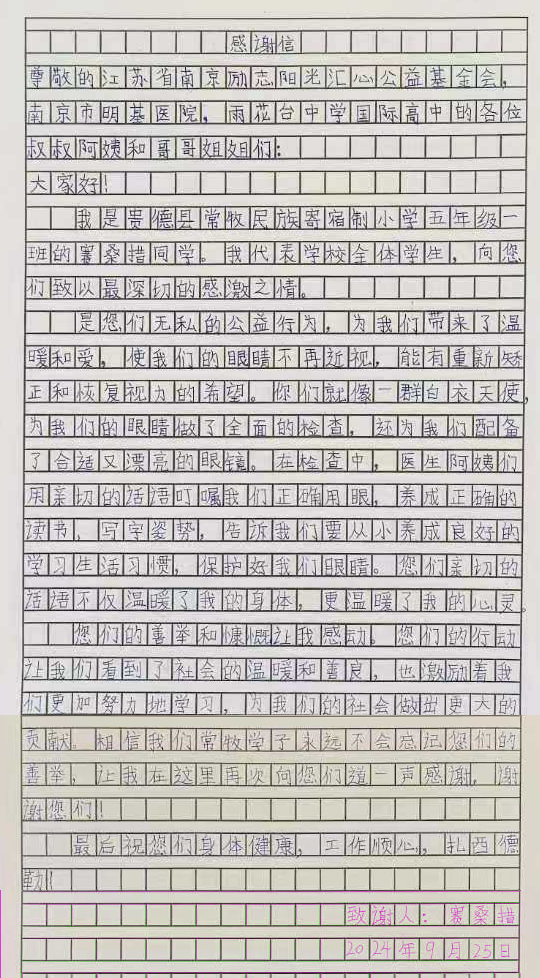 感谢信
尊敬的江苏省南京励志阳光汇心公益基金会，
南京市明基医院，雨花台中学国际高中的各位
叔叔阿姨和哥哥姐姐们：
大家好！
我是贵德县常牧民族寄宿制小学五年级一
班的赛桑措同学。我代表学校全体学生，向您
们致以最深切的感激之情。
是您们无私的公益行为，为我们带来了温
暖和爱，使我们的眼睛不再近视，能有重新矫
正和恢复视力的希望。你们就像一群白衣天使，
为我们的眼睛做了全面的检查，还为我们配备
了合适又漂亮的眼镜。在检查中，医生阿姨们
用亲切的话语叮嘱我们正确用眼，养成正确的
读书、写字姿势，告诉我们要从小养成良好的
学习生活习惯，保护好我们眼睛。您们亲切的
话语不仅温暖了我的身体，更温暖了我的心灵。
您们的善举和慷慨让我感动。您们的行动
让我们看到了社会的温暖和善良，也激励着我
们更加努力地学习，为我们的社会做出更大的
贡献。相信我们常牧学子永远不会忘记您们的
善举，让我在这里再次向您们道一声感谢，谢
谢您们！
最后祝您们身体健康，工作顺心，扎西德
勒！
致谢人：赛桑措
2024年9月25日